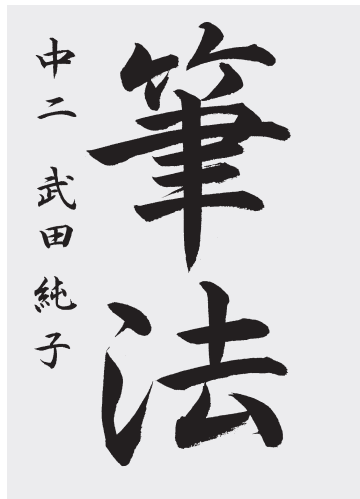 筆法
中二 武田純子